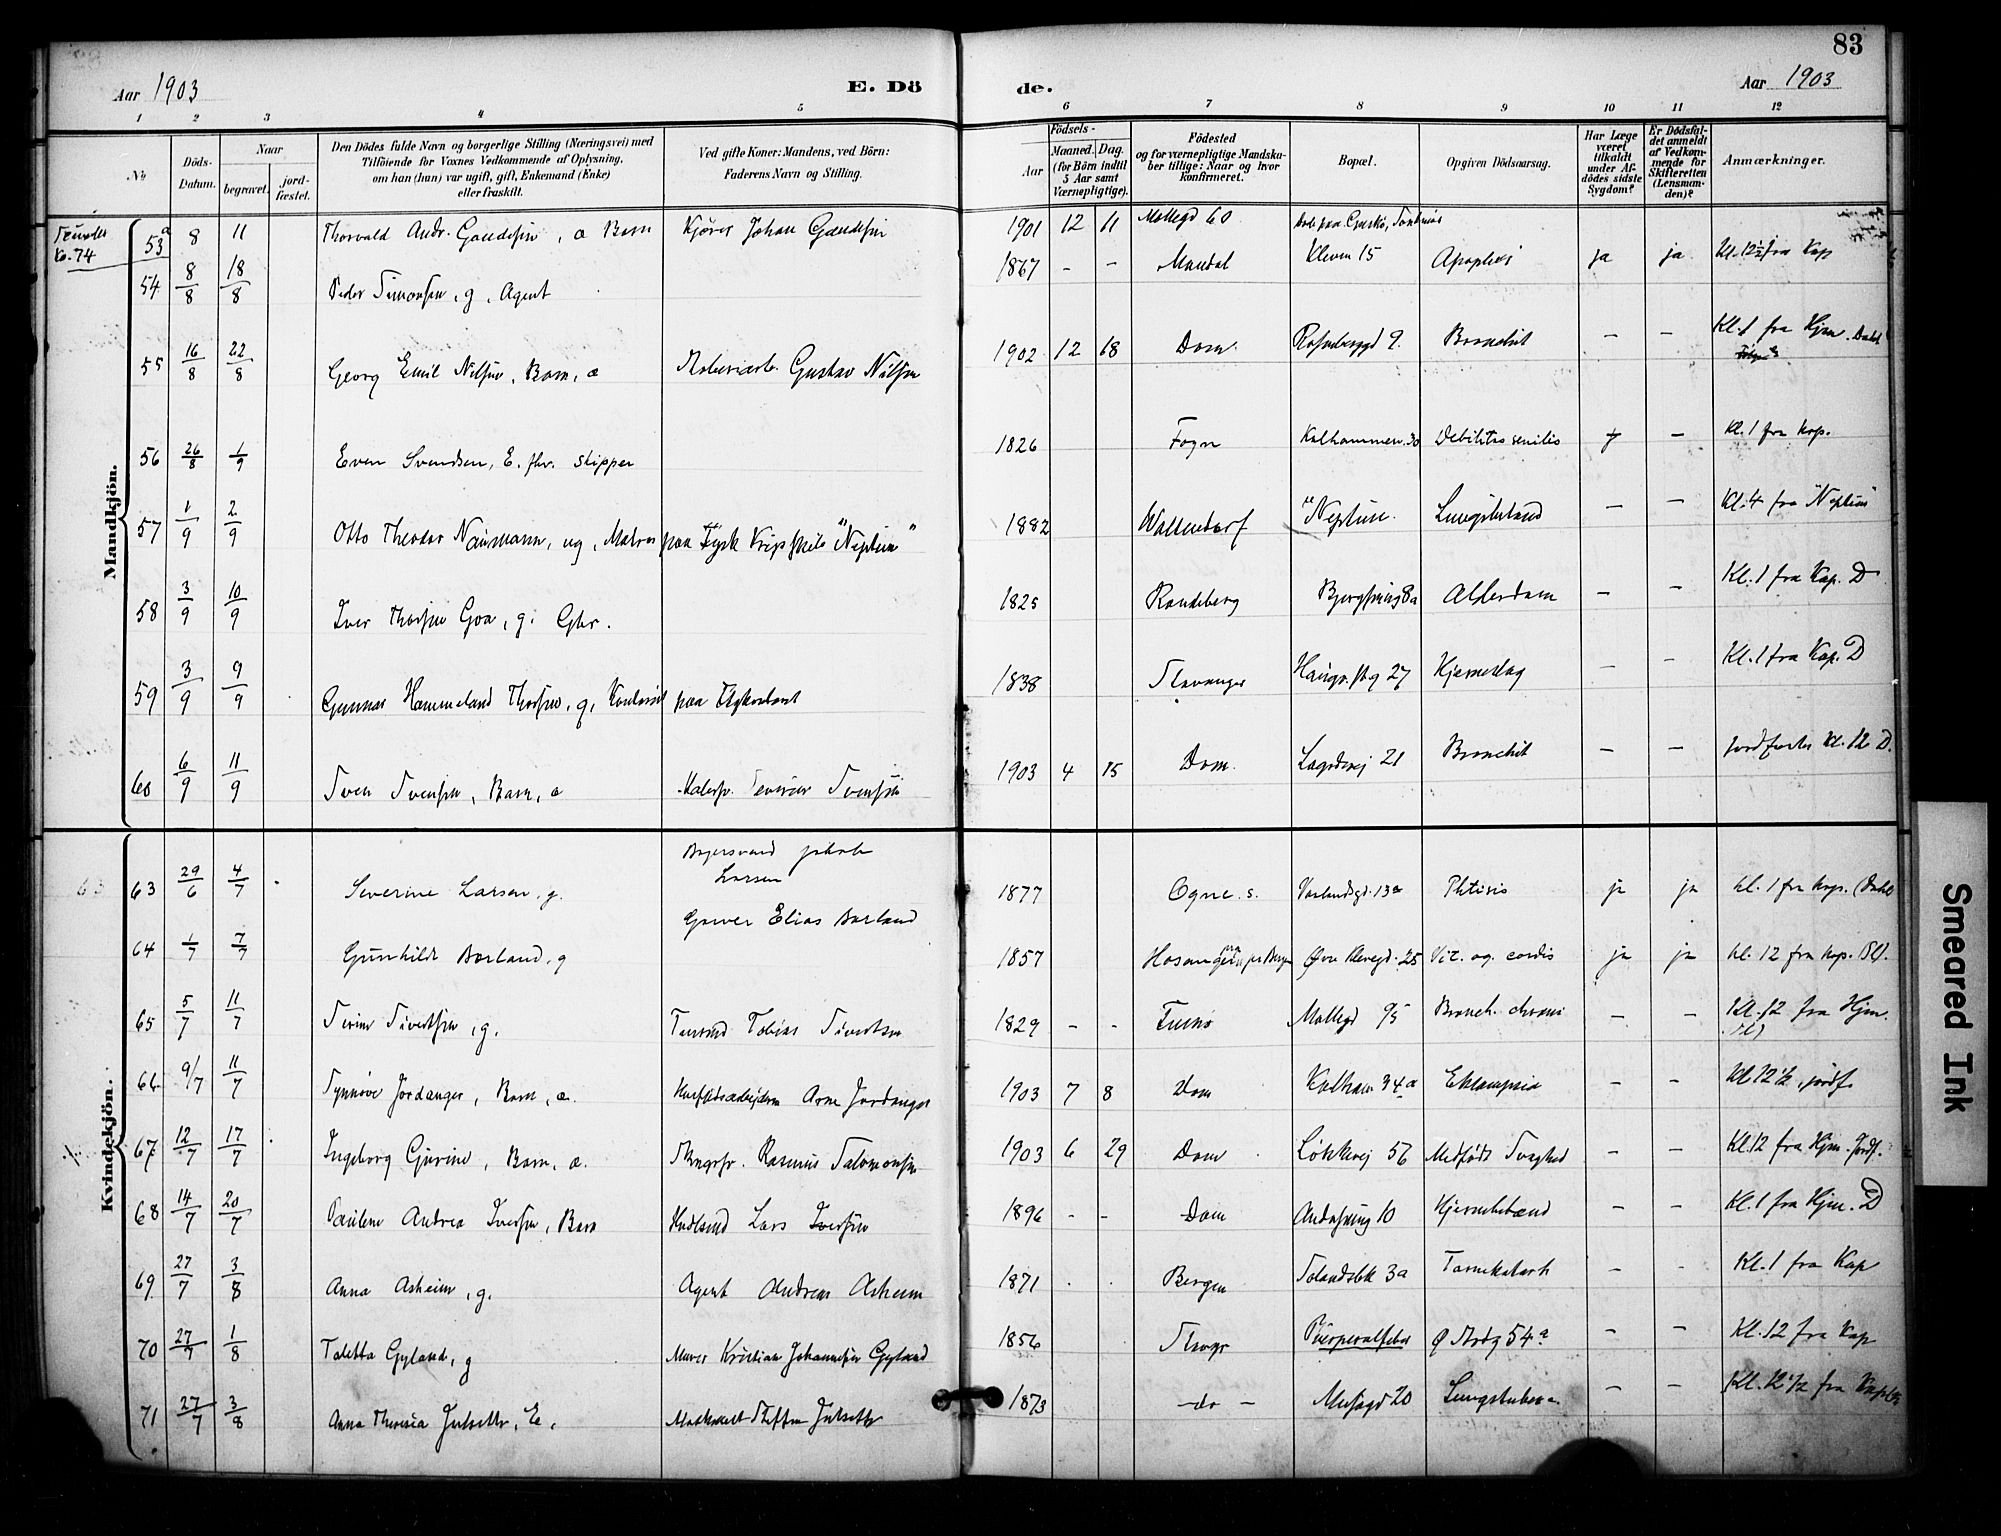 83
Aar 1903
E. Dö
de.
Aar 1903
1 2 3 4 5 6 7 8 9 10 11 12
No
Döds-Datum.
Naar
begravet.
jord-fæstet.
Den Dödes fulde Navn og borgerlige Stilling (Næringsvei) med
Tilföiende for Voxnes Vedkommende af Oplysning,
om han (hun) var ugift, gift, Enkemand (Enke)
eller fraskilt.
Ved gifte Koner: Mandens, ved Börn:
Faderens Navn og Stilling.
Födsels-
Aar
Maaned. Dag.
(for Börn indtil
5 Aar samt
Værnepligtige).
Födested
og for værnepligtige Mandska-
ber tillige: Naar og hvor
konfirmeret.
Bopæl.
Opgiven Dödsaarsag.
Har Læge
været
tilkaldt
under Af-
dödes sidste
Sygdom?
Er Dødsfal-
det anmeldt
af Vedkom-
mende for
Skifteretten
(Lensman-
den)?
Anmærkninger.
Mandkjön.
No. 74
53a 8 11 Thorvald Andr. Gaudesen, a Barn Kjører Johan Gaudesen 1901 12 11 Møllegd 60
54 8/8 18/8 Peder Simonsen, g, Agent 1867 - - Mandal Kleven 15 Apoplexi ja ja Kl. 12½ fra Kap
55 16/8 22/8 Georg Emil Nilsen, Barn, a Gustav Nilsen 1902 12 18 Dom. Rosenberggd 9. Bronchit - - Kl. 1 fra Hjm. Dahl
56 26/8 1/9 Even Svendsen, E. fhv. Skipper 1826 Fogn Kalhammer. 30 Debilitas senilis - Kl. 1 fra Kap.
57 1/9 2/9 Otto Theodor Naumann, ug, Matros paa tysk Krigsskib "Neptun" 1882 Waltersdorf "Neptun. Lungebetænd - - Kl. 4 fra "Neptun"
58 3/9 10/9 Iver Thorsen Goa, g. Gbr. 1825 Randeberg 8a Alderdom - - Kl. 1 fra Kap. D
59 3/9 9/9 Gunnar Hammeland Thorsen, g, paa 1838 Stavanger 27 Hjerneslag - - Kl. 1 fra Kap. D
60 6/9 11/9 Sven Svensen, Barn, a Malersv. Severin Svensen 1903 4 15 Dom. Lagårdsvej 21 Bronchit - - Jordfæstes Kl. 12 D.
Kvindekjön.
63 63 29/6 4/7 Severine Larsen, g. Bryersvend Jakob Larsen 1877 Ogne. s. 13a Phtisis ja ja Kl. 1 fra Kap. (Dahl
64 1/7 7/7 Gunhild Barland, g Garver Elias Barland 1857 Hosanger pr Bergen Øvre Klevegd. 25 Vit. og. cordis ja ja Kl. 12 fra Kap.
65 5/7 11/7 Serine Sivertsen, g. Tobias Sivertsen 1829 - - Finnø Møllegd 95 Bronch. chronic - - Kl. 12 fra Hjm.
66 9/7 11/7 Synnøve Jordanger, Barn, a. Arne Jordanger 1903 7 8 Dom Kalham 34a Eklampsia - - Kl 12½, jordf.
67 12/7 17/7 Ingeborg Gurine, Barn, a. Rasmus Salomonsen 1903 6 29 Dom Løkkevej 56 Medfødt Svaghed - - Kl. 12 fra Hjm. Jordf.
68 14/7 20/7 Pauline Andrea Iversen, Barn Lars Iversen 1896 - - Dom 10 Hjernebetænd - - Kl. 1 fra Hjm. D
69 27/7 3/8 Anna Asheim, g. Agent Andreas Asheim 1871 Bergen 3a Tarmekatarh - - Kl. 1 fra Kap
70 27/7 1/8 Taletta Gyland, g Murer Kristian Johannesen Gyland 1856 Stvgr Puerperalfeber Ø Strdg 54a - - Kl. 12 fra Kap
71 27/7 3/8 Anna Theresia, E. 1873 -do- Musegd 20 - - Kl. 12½ fra Kap
Smeared Ink